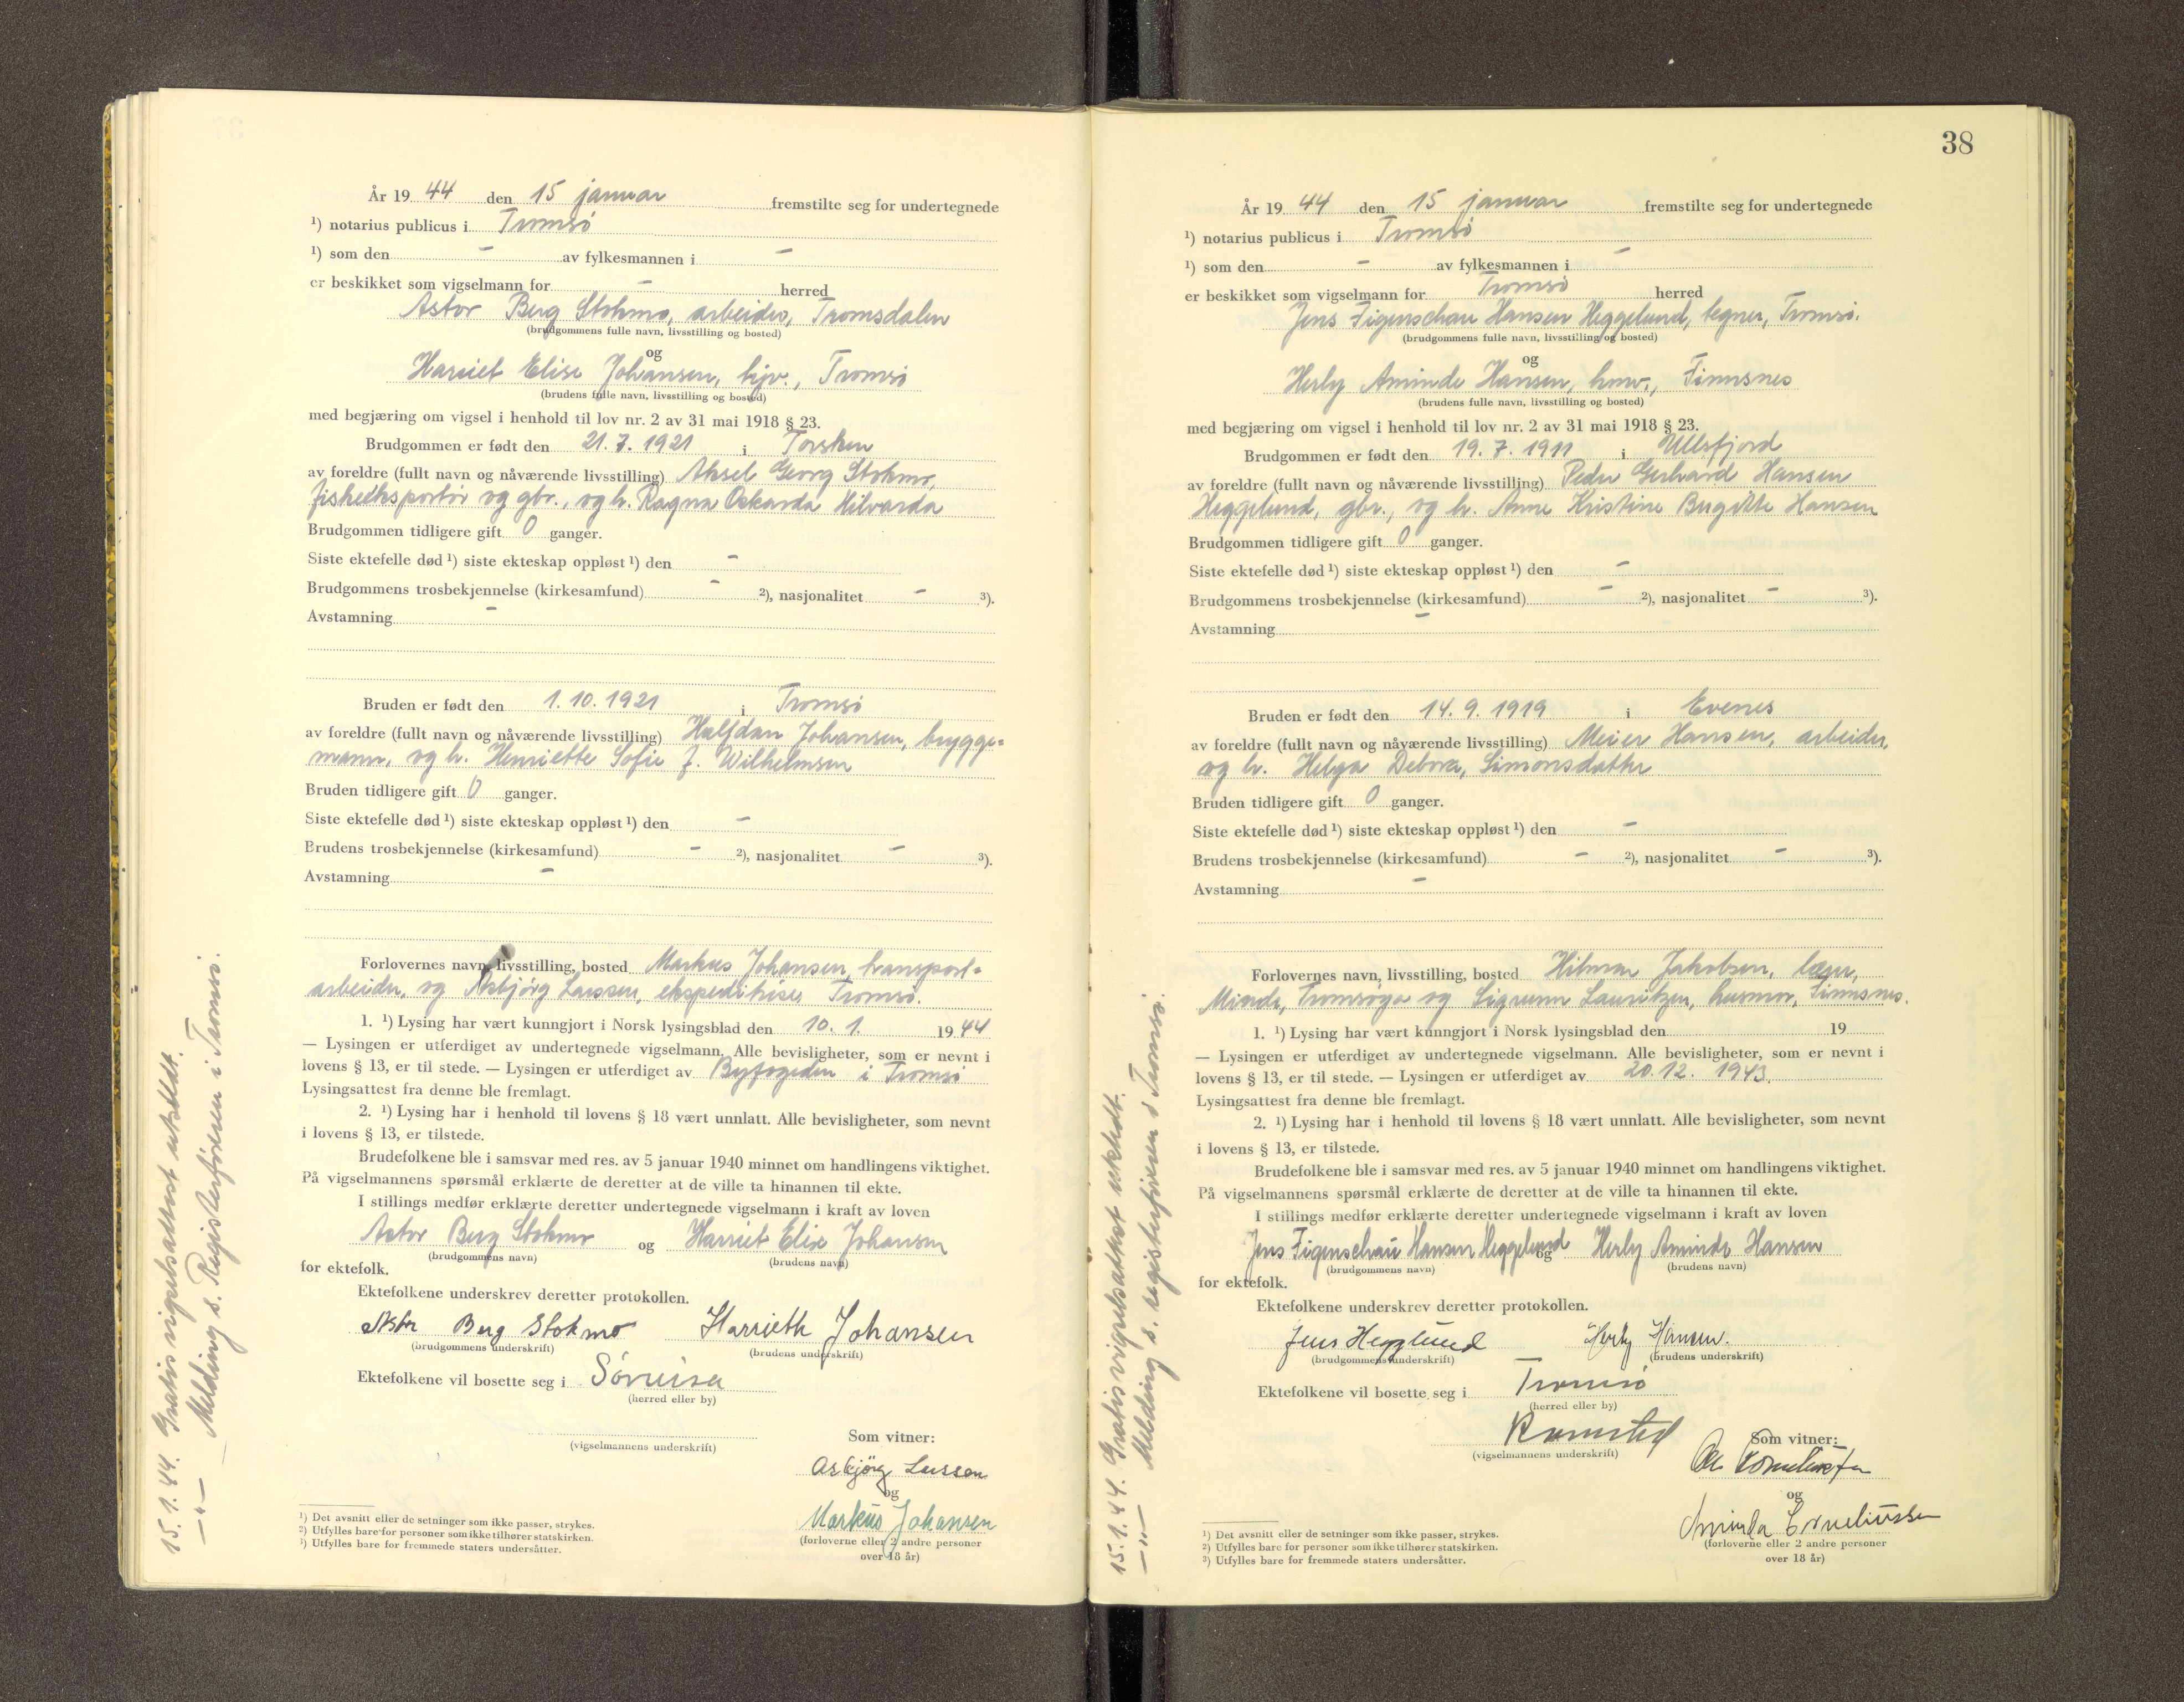 År 19 44 den 15 januar fremstilte seg for undertegnede
¹) notarius publicus i Tromsö
¹) som den - av fylkesmannen i -
er beskikket som vigselmann for - herred
Astor Berg Stokmo, arbeider, Tromsdalen
(brudgommens fulle navn, livsstilling og bosted)
og
Harriet Elise Johansen, hjv., Tromsö
(brudens fulle navn, livsstilling og bosted)
med begjæring om vigsel i henhold til lov nr. 2 av 31 mai 1918 § 23.
Brudgommen er født den 21. 7. 1921 i Torsken
av foreldre (fullt navn og nåværende livsstilling) Aksel Georg Stokmo,
fiskeeksportör og gbr., og h. Ragna Oskarda Hilvarda
Brudgommen tidligere gift 0 ganger.
Siste ektefelle død ¹) siste ekteskap oppløst ¹) den -
Brudgommens trosbekjennelse (kirkesamfund) - ²), nasjonalitet - ³).
Avstamning -
Bruden er født den 1. 10. 1921 i Tromsö
av foreldre (fullt navn og nåværende livsstilling) Halfdan Johansen, brygge-
mann, og h. Henriette Sofie f. Wilhelmsen
Bruden tidligere gift 0 ganger.
Siste ektefelle død ¹) siste ekteskap oppløst ¹) den -
Brudens trosbekjennelse (kirkesamfund) - ²), nasjonalitet - ³).
Avstamning -
Forlovernes navn, livsstilling, bosted Markus Johansen, transport-
arbeider, og Asbjörg Larssen, ekspeditrise, Tromsö.
1. ¹) Lysing har vært kunngjort i Norsk lysingsblad den 10. 1. 19 44
— Lysingen er utferdiget av undertegnede vigselmann. Alle bevisligheter, som er nevnt i
lovens § 13, er til stede. — Lysingen er utferdiget av Byfogeden i Tromsö
Lysingsattest fra denne ble fremlagt.
2. ¹) Lysing har i henhold til lovens § 18 vært unnlatt. Alle bevisligheter, som nevnt
i lovens § 13, er tilstede.
Brudefolkene ble i samsvar med res. av 5 januar 1940 minnet om handlingens viktighet.
På vigselmannens spørsmål erklærte de deretter at de ville ta hinannen til ekte.
I stillings medfør erklærte deretter undertegnede vigselmann i kraft av loven
Astor Berg Stokmo og Harriet Elise Johansen
(brudgommens navn) (brudens navn)
for ektefolk.
Ektefolkene underskrev deretter protokollen.
Astor Berg Stokmo Harrieth Johansen
(brudgommens underskrift) (brudens underskrift)
Ektefolkene vil bosette seg i Sörreisa
(herred eller by)
(vigselmannens underskrift)
Som vitner:
Asbjörg Larssen
og
Markus Johansen
(forloverne eller 2 andre personer
over 18 år)
¹) Det avsnitt eller de setninger som ikke passer, strykes.
²) Utfylles bare for personer som ikke tilhører statskirken.
³) Utfylles bare for fremmede staters undersåtter.
15. 1. 44. Gratis vigselsattest utstedt.
— " — Melding s. Registerföreren i Tromsö.
38
År 19 44 den 15 januar fremstilte seg for undertegnede
¹) notarius publicus i Tromsö
¹) som den - av fylkesmannen i -
er beskikket som vigselmann for Tromsö herred
Jens Figenschau Hansen Heggelund, tegner, Tromsö.
(brudgommens fulle navn, livsstilling og bosted)
og
Herly Aminde Hansen, husv., Finnsnes
(brudens fulle navn, livsstilling og bosted)
med begjæring om vigsel i henhold til lov nr. 2 av 31 mai 1918 § 23.
Brudgommen er født den 19. 7. 1911 i Ullsfjord
av foreldre (fullt navn og nåværende livsstilling) Peder Gerhard Hansen
Heggelund, gbr., og h. Anne Kristine Birgitte Hansen
Brudgommen tidligere gift 0 ganger.
Siste ektefelle død ¹) siste ekteskap oppløst ¹) den -
Brudgommens trosbekjennelse (kirkesamfund) - ²), nasjonalitet - ³).
Avstamning -
Bruden er født den 14. 9. 1919 i Evenes
av foreldre (fullt navn og nåværende livsstilling) Meier Hansen, arbeider,
og h. Helga Debora, Simonsdatter
Bruden tidligere gift 0 ganger.
Siste ektefelle død ¹) siste ekteskap oppløst ¹) den -
Brudens trosbekjennelse (kirkesamfund) - ²), nasjonalitet - ³).
Avstamning -
Forlovernes navn, livsstilling, bosted Hilmar Jakobsen, lærer,
Minde, Tromsöya og Sigrunn Lauritzen, husmor, Finnsnes.
1. ¹) Lysing har vært kunngjort i Norsk lysingsblad den 19
— Lysingen er utferdiget av undertegnede vigselmann. Alle bevisligheter, som er nevnt i
lovens § 13, er til stede. — Lysingen er utferdiget av 20. 12. 1943.
Lysingsattest fra denne ble fremlagt.
2. ¹) Lysing har i henhold til lovens § 18 vært unnlatt. Alle bevisligheter, som nevnt
i lovens § 13, er tilstede.
Brudefolkene ble i samsvar med res. av 5 januar 1940 minnet om handlingens viktighet.
På vigselmannens spørsmål erklærte de deretter at de ville ta hinannen til ekte.
I stillings medfør erklærte deretter undertegnede vigselmann i kraft av loven
Jens Figenschau Hansen Heggelund og Herly Aminde Hansen
(brudgommens navn) (brudens navn)
for ektefolk.
Ektefolkene underskrev deretter protokollen.
Jens Hegglund Herly Hansen.
(brudgommens underskrift) (brudens underskrift)
Ektefolkene vil bosette seg i Tromsö
(herred eller by)
(vigselmannens underskrift)
Som vitner:
og
Corneliussen
(forloverne eller 2 andre personer
over 18 år)
¹) Det avsnitt eller de setninger som ikke passer, strykes.
²) Utfylles bare for personer som ikke tilhører statskirken.
³) Utfylles bare for fremmede staters undersåtter.
15. 1. 44. Gratis vigselsattest utstedt.
— " — Melding s. registerföreren i Tromsö.